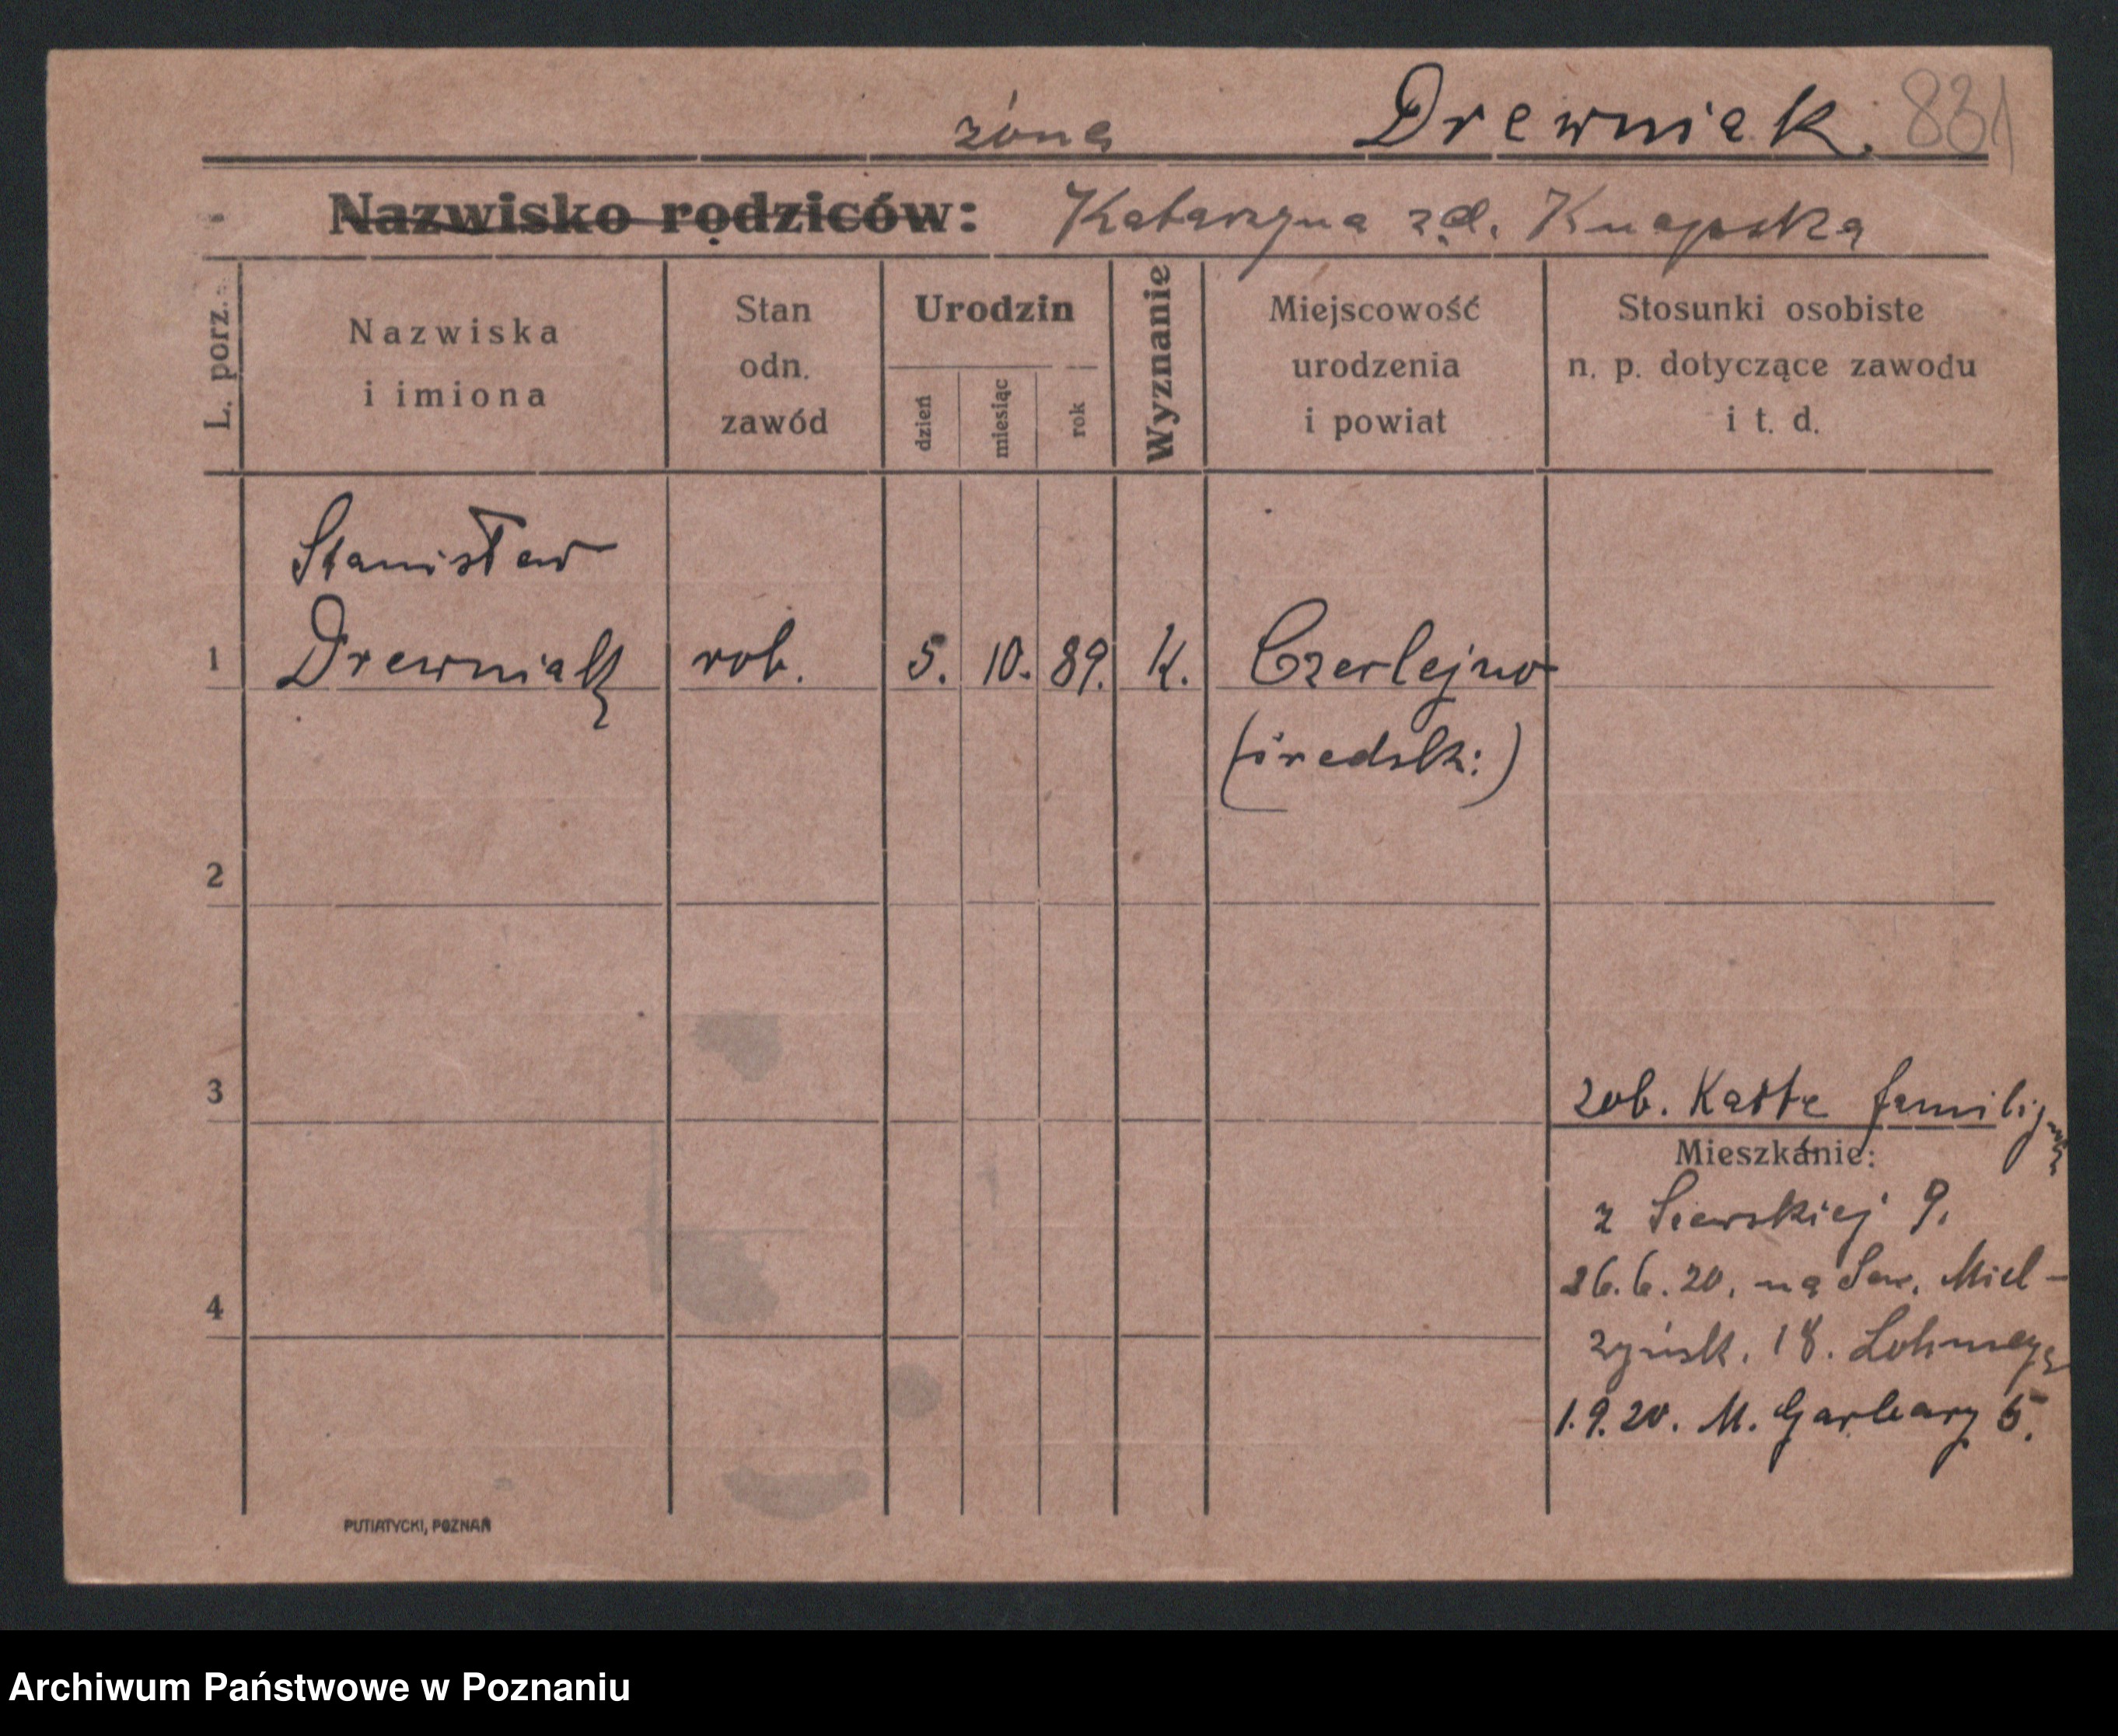 żona Drewniak. 831
Nazwisko rodziców: Katarzyna z.d. Knapska
L. porz.
Nazwiska
i imiona
Stan
odn.
zawód
Urodzin
dzień
miesiąc
rok
Wyznanie
Miejscowość
urodzenia
i powiat
Stosunki osobiste
n. p. dotyczące zawodu
i t. d.
Stanisław
1 Drewniak rob. 5. 10. 89. K. Czerlejno
(średzk:)
2
3 zob. Kartę familijną
Mieszkanie:
z 9.
26.6.20. na Sew. Miel-
żyńsk. 18.
4
1.9.20. M. Garbary 5.
PUTIATYCKI, POZNAŃ
Archiwum Państwowe w Poznaniu